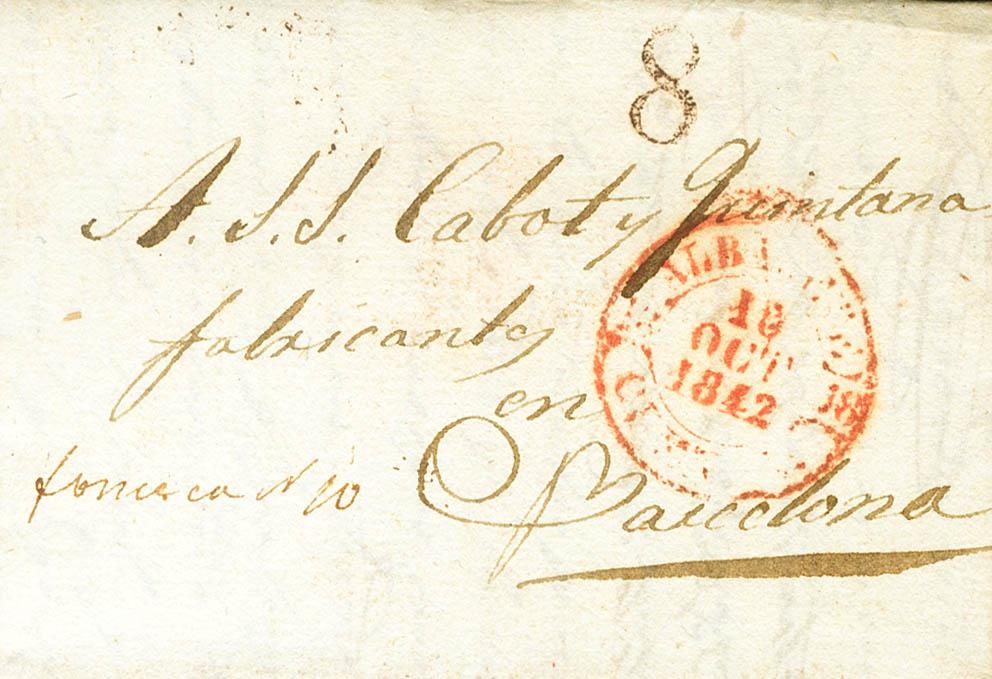 8
A. S. S. Cabot y Quintana
fabricantes
en
Barcelona
fonseca nº 10
18
OCT
1842